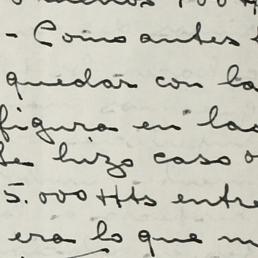 - Como antes
quedar con la
figura en las
se hizo caso
5.000 Hts entre
era lo que